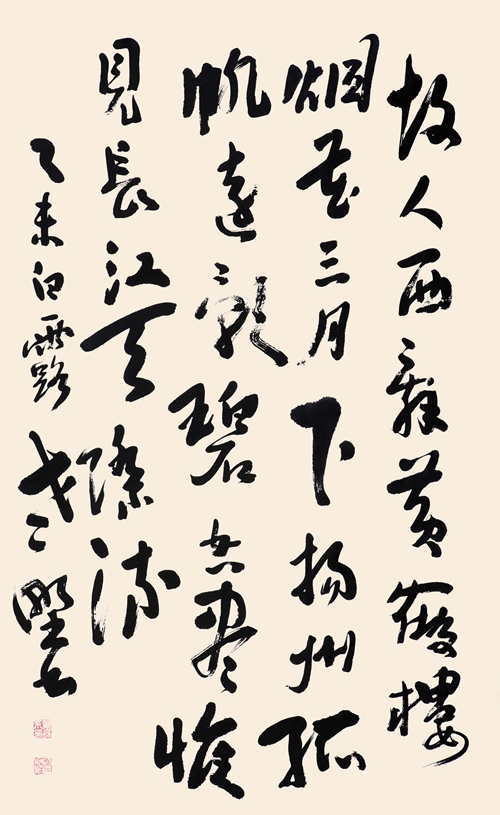 故人西辭黃鶴樓
烟花三月下揚州孤
帆遠影碧空盡惟
見長江天際流
乙未白露